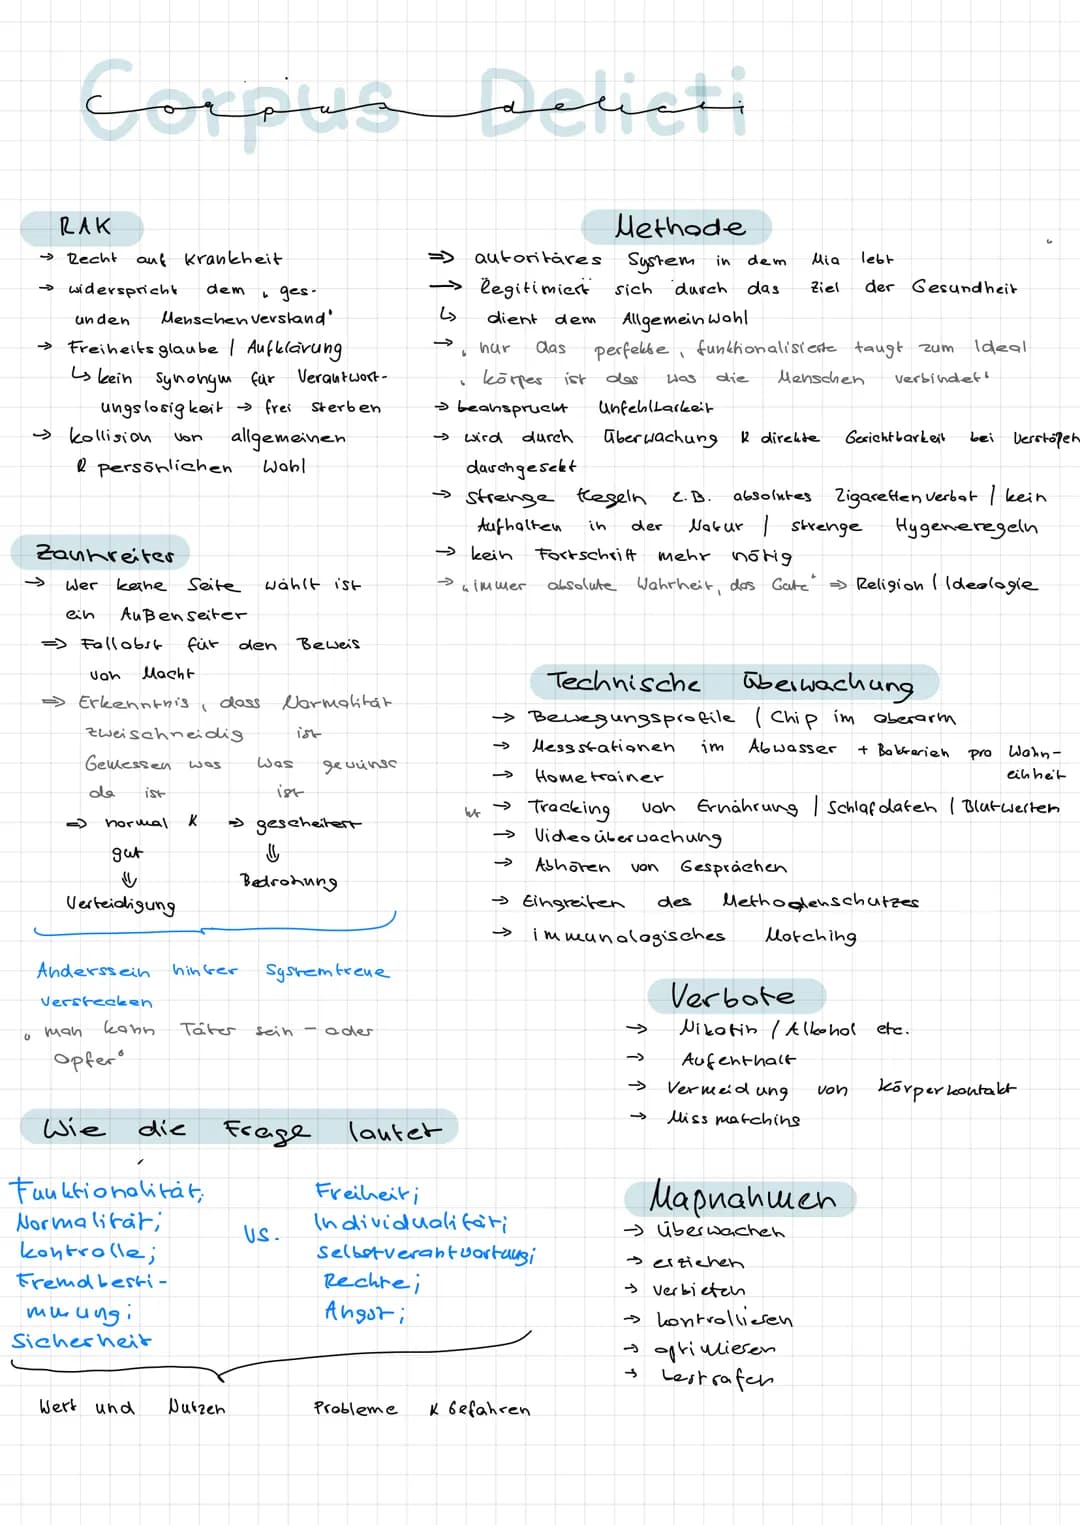 Corpus Delicti
Corpus delicti
RAK
→ Recht auf Krankheit
→ widerspricht dem „ges-
unden Menschenverstand"
→ Freiheitsglaube / Aufklärung
↳ kein Synonym für Verantwort-
ungslosigkeit → frei sterben
→ kollision von allgemeinen
& persönlichen Wohl
Zaunreiter
→ Wer keine Seite wählt ist
ein Außenseiter
⇒ Fallobst für den Beweis
von Macht
⇒ Erkenntnis, dass Normalität
zweischneidig ist
Gemessen was Was gewünsc
da ist ist
⇒ normal & ⇒ gescheitert
gut ⇓
⇓ Bedrohung
Verteidigung
Anderssein hinter Systemtreue
verstecken
„man kann Täter sein – oder
Opfer"
Wie die Frage lautet
Funktionalität;
Normalität;
kontrolle;
Fremdbesti-
mmung;
Sicherheit
vs.
Freiheit;
Individualität;
Selbstverantwortung;
Rechte;
Angst;
Wert und Nutzen
Probleme & Gefahren
Methode
⇒ autoritäres System in dem Mia lebt
→ legitimiert sich durch das Ziel der Gesundheit
↳ dient dem Allgemeinwohl
→ „nur das perfekte, funktionalisierte taugt zum Ideal
„körper ist das was die Menschen verbindet"
→ beansprucht Unfehlbarkeit
→ wird durch Überwachung & direkte Gerichtbarkeit bei Verstößen
durchgesetzt
→ strenge Regeln z.B. absolutes Zigarettenverbot / kein
Aufhalten in der Natur / strenge Hygeneregeln
→ kein Fortschritt mehr nötig
→ „immer absolute Wahrheit, das Gute" ⇒ Religion / Ideologie
Technische Überwachung
→ Bewegungsprofile / Chip im oberarm
→ Messstationen im Abwasser + Bakterien pro Wohn-
einheit
→ Hometrainer
→ Tracking von Ernährung / Schlafdaten / Blutwerten
→ Videoüberwachung
→ Abhören von Gesprächen
→ Eingreifen des Methodenschutzes
→ immunologisches Matching
Verbote
→ Nikotin / Alkohol etc.
→ Aufenthalt
→ Vermeidung von körperkontakt
→ Miss matching
Maßnahmen
→ Überwachen
→ erziehen
→ verbieten
→ kontrollieren
→ optimieren
→ bestrafen